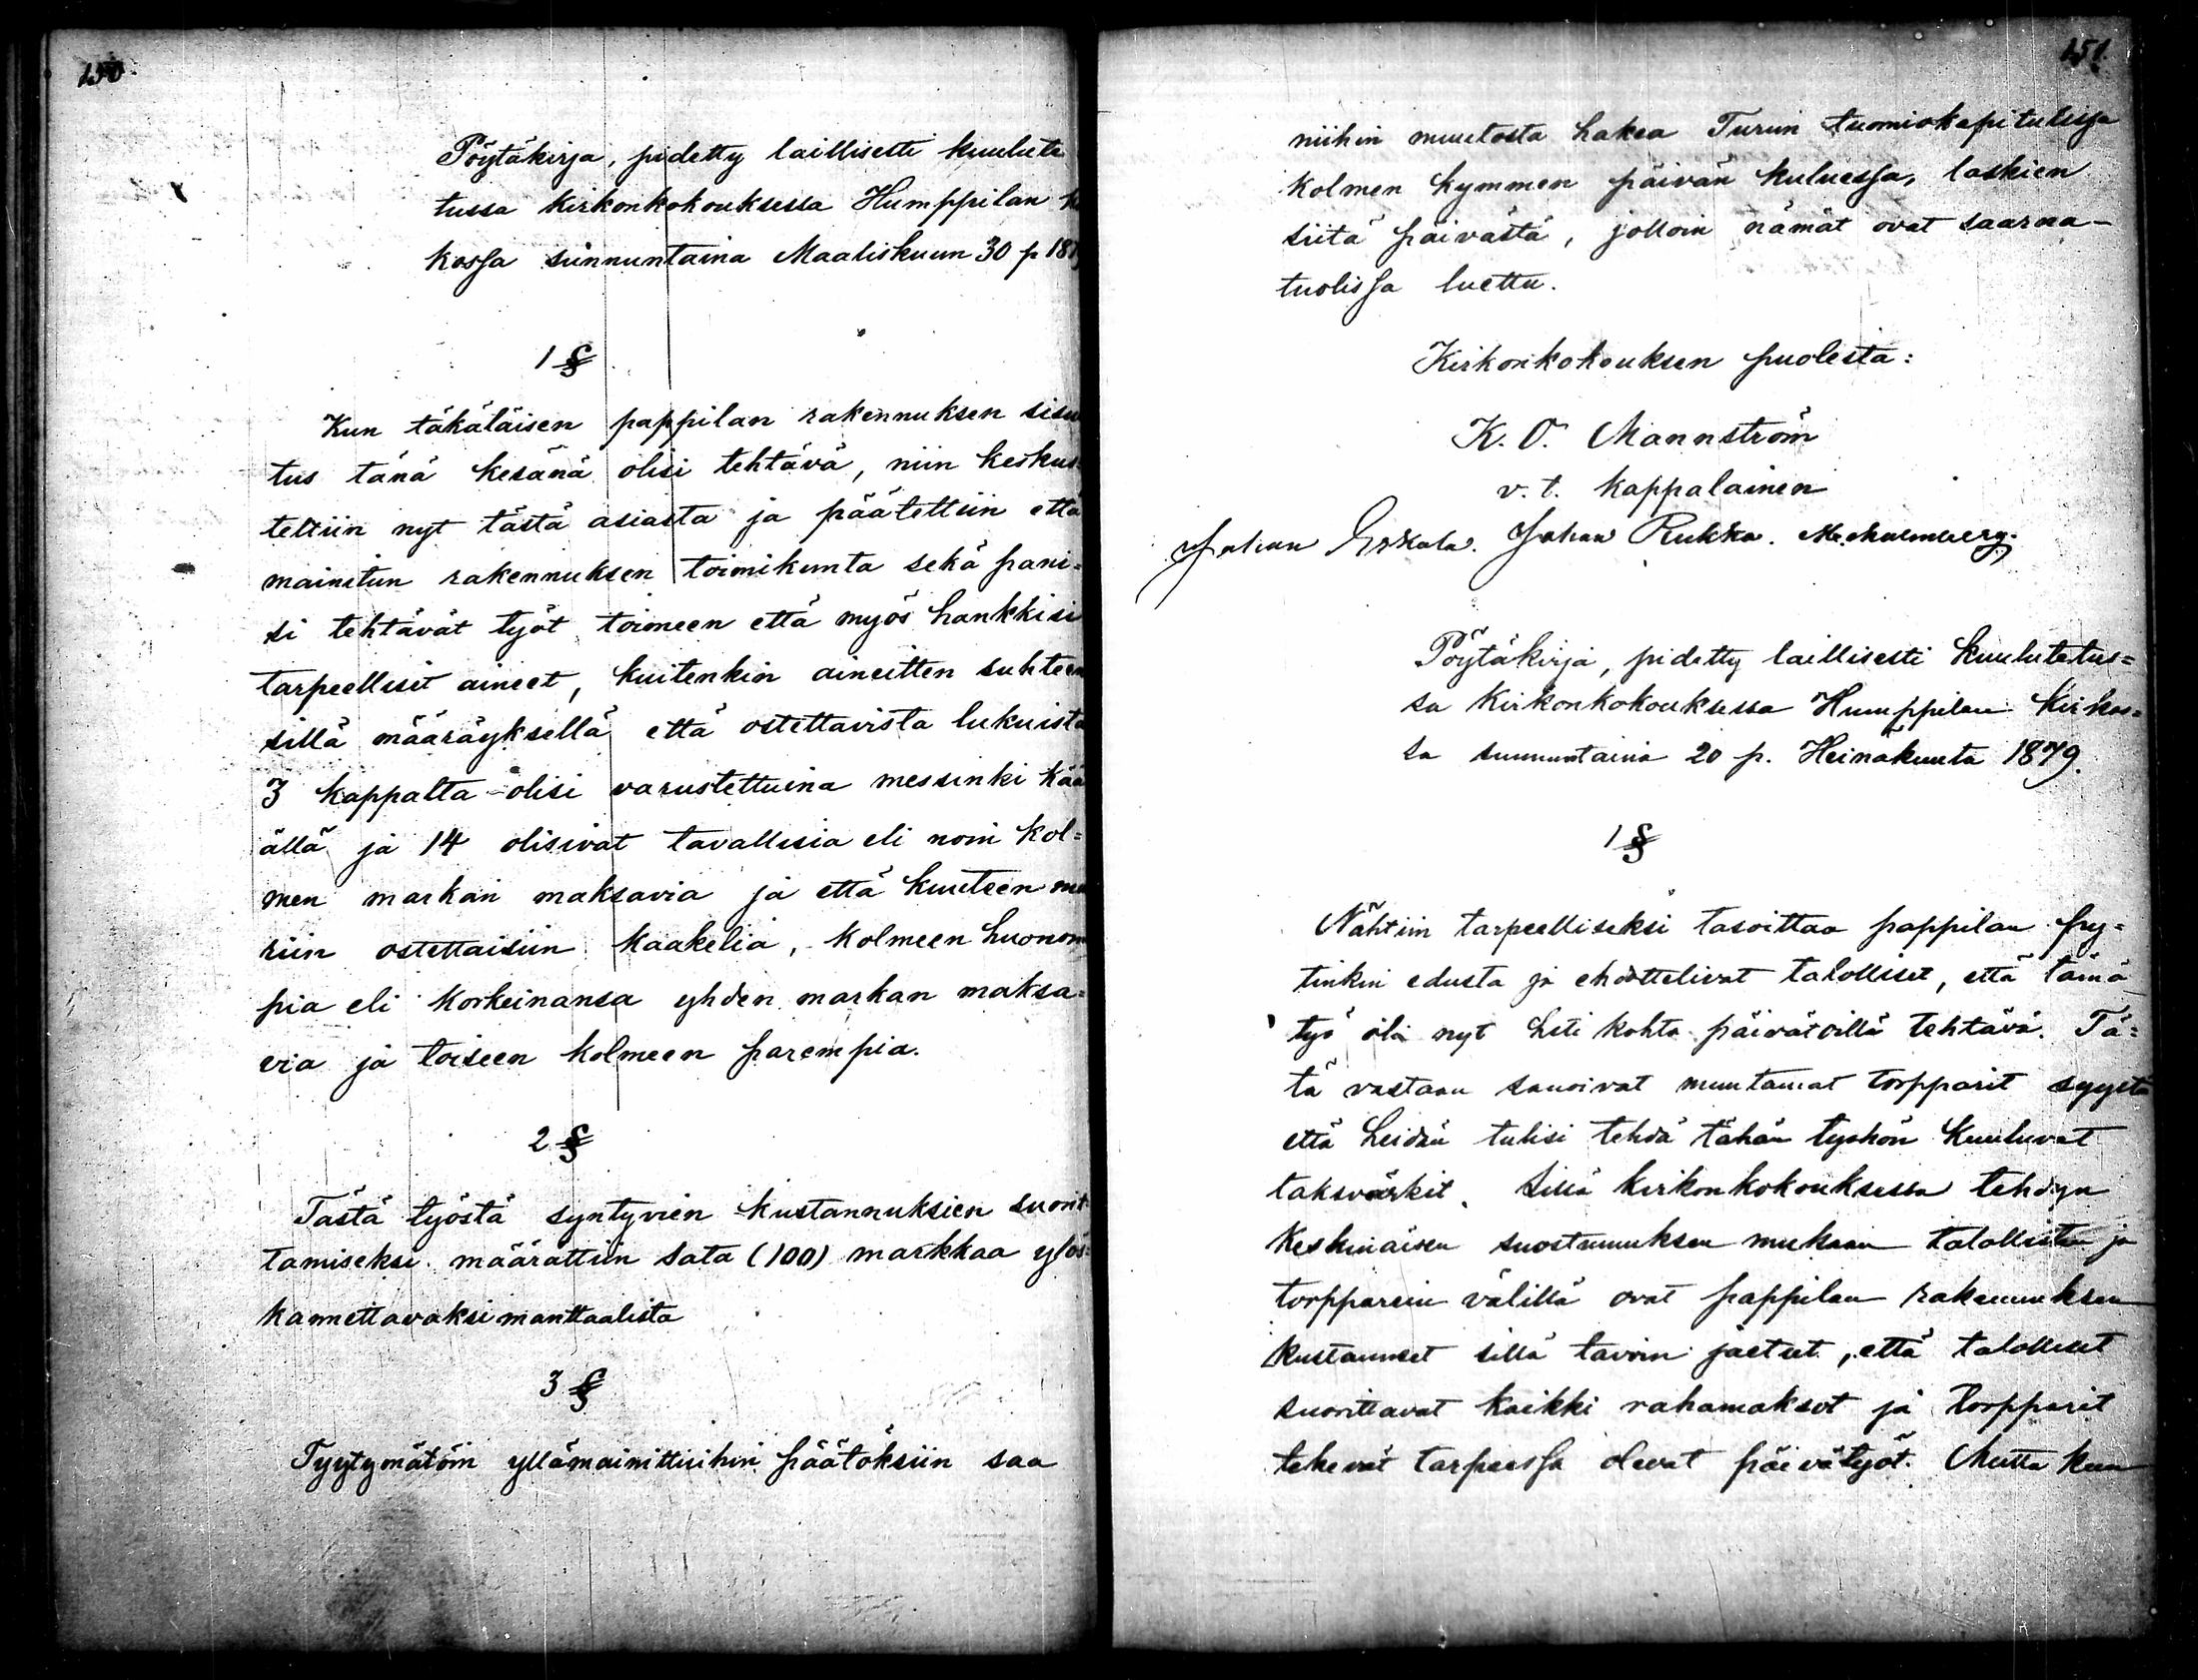 150.
Pöytäkirja, pidetty laillisesti kuulute
tussa kirkonkokouksessa Humppilan
kossa sunnuntaina Maaliskuun 30 p 187
1 §
Kun täkäläisen pappilan rakennuksen sisu
tus tänä kesänä olisi tehtävä, niin keskus=
teltiin nyt tästä asiasta ja päätettiin että
mainitun rakennuksen toimikunta sekä pani=
si tehtävät työt toimeen että myös hankkisi
tarpeelliset aineet, kuitenkin aineitten suhteen
sillä määräyksellä että ostettavista lukuista
3 kappalta olisi varustettuina messinki kää
ällä ja 14 olisivat tavallisia eli noin kol=
men markan maksavia ja että kuuteen mu
riin ostettaisiin kaakelia, kolmeen huonom
pia eli korkeinansa yhden markan maksa=
via ja toiseen kolmeen parempia.
2 §
Tästä työstä syntyvien kustannuksien suorit
tamiseksi määrättiin sata (100) markkaa ylös=
kannettavaksi manttaalista
3 §
Tyytymätöin yllämainittuihin päätöksiin saa
151.
niihin muutosta hakea Turun tuomiokapitulissa
kolmen kymmen päivän kuluessa, laskien
siitä päivästä, jolloin nämät ovat saarna-
tuolissa luettu.
Kirkonkokouksen puolesta:
K. O. Mannström
v. t. kappalainen
Johan Erkala. Johan Rukka. M. Malmberg.
Pöytäkirja, pidetty laillisesti kuulutetus=
sa kirkonkokouksessa Humppilan kirkos=
sa sunnuntaina 20 p. Heinäkuuta 1879.
1 §
Nähtiin tarpeelliseksi tasoittaa pappilan py=
tinkin edusta ja ehdottelivat talolliset, että tämä
työ oli nyt heti kohta päivätöillä tehtävä. Tä=
tä vastaan sanoivat muutamat torpparit syystä
että heidän tulisi tehdä tähän työhön kuuluvat
taksvärkit. Sillä kirkonkokouksessa tehdyn
keskinäisen suostumuksen mukaan talollisten ja
torpparein välillä ovat pappilan rakennuksen
kustannuset sillä tavoin jaetut, että talolliset
suorittavat kaikki rahamaksot ja torpparit
tekevät tarpeessa olevat päivätyöt. Mutta kun